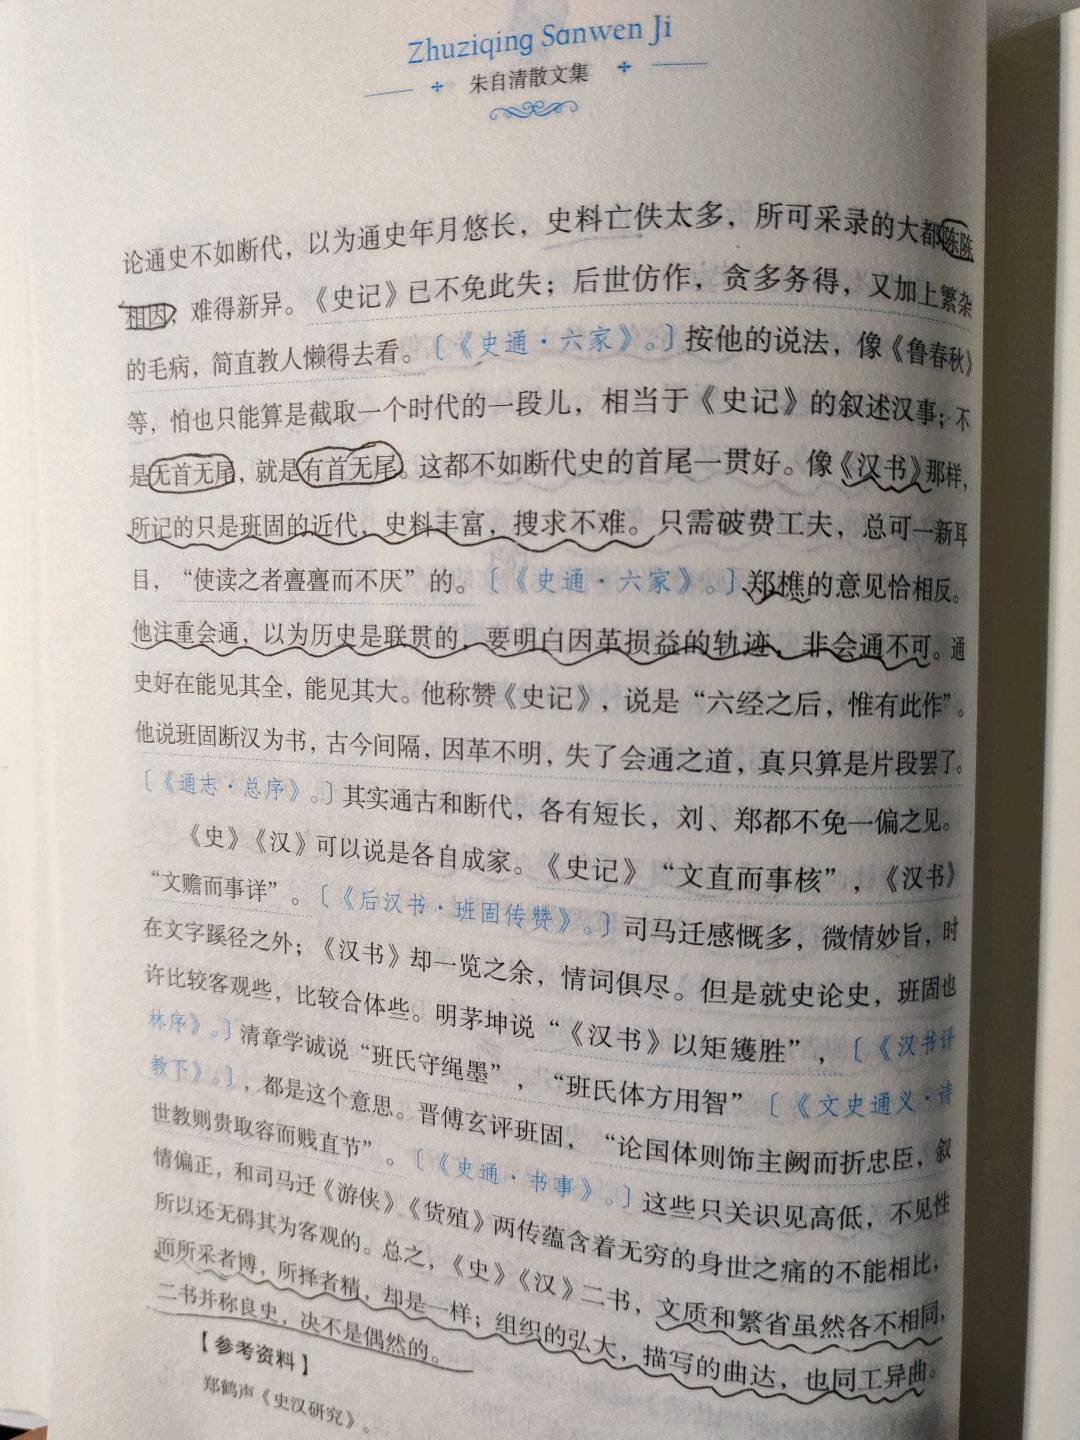 Zhuziqing Sanwen Ji
朱自清散文集
论通史不如断代，以为通史年月悠长，史料亡佚太多，所可采录的大都陈陈
相因，难得新异。《史记》已不免此失；后世仿作，贪多务得，又加上繁杂
的毛病，简直教人懒得去看。〔《史通·六家》。〕按他的说法，像《鲁春秋》
等，怕也只能算是截取一个时代的一段儿，相当于《史记》的叙述汉事；不
是无首无尾，就是有首无尾。这都不如断代史的首尾一贯好。像《汉书》那样，
所记的只是班固的近代，史料丰富，搜求不难。只需破费工夫，总可一新耳
目，“使读之者亹亹而不厌”的。〔《史通·六家》。〕郑樵的意见恰相反。
他注重会通，以为历史是联贯的，要明白因革损益的轨迹，非会通不可。通
史好在能见其全，能见其大。他称赞《史记》，说是“六经之后，惟有此作”。
他说班固断汉为书，古今间隔，因革不明，失了会通之道，真只算是片段罢了。
〔《通志·总序》。〕其实通古和断代，各有短长，刘、郑都不免一偏之见。
《史》《汉》可以说是各自成家。《史记》“文直而事核”，《汉书》
“文赡而事详”。〔《后汉书·班固传赞》。〕司马迁感慨多，微情妙旨，时
在文字蹊径之外；《汉书》却一览之余，情词俱尽。但是就史论史，班固也
许比较客观些，比较合体些。明茅坤说“《汉书》以矩矱胜”，〔《汉书评
林序》。〕清章学诚说“班氏守绳墨”，“班氏体方用智”〔《文史通义·诗
教下》。〕，都是这个意思。晋傅玄评班固，“论国体则饰主阙而折忠臣，叙
世教则贵取容而贱直节”。〔《史通·书事》。〕这些只关识见高低，不见性
情偏正，和司马迁《游侠》《货殖》两传蕴含着无穷的身世之痛的不能相比，
所以还无碍其为客观的。总之，《史》《汉》二书，文质和繁省虽然各不相同，
而所采者博，所择者精，却是一样；组织的弘大，描写的曲达，也同工异曲。
二书并称良史，决不是偶然的。
【参考资料】
郑鹤声《史汉研究》。